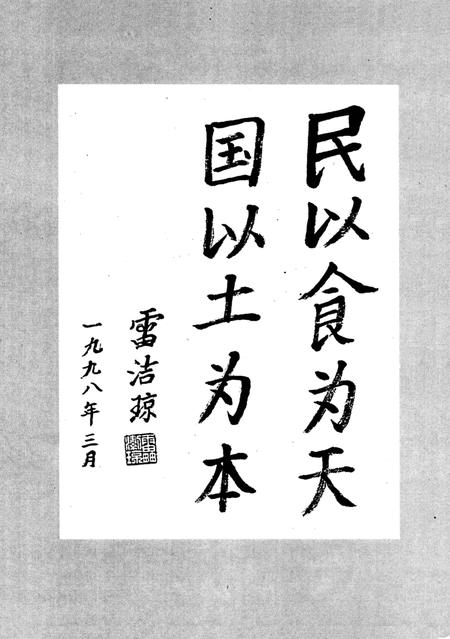 民以食为天
国以土为本
雷洁琼
一九九八年三月
雷洁琼